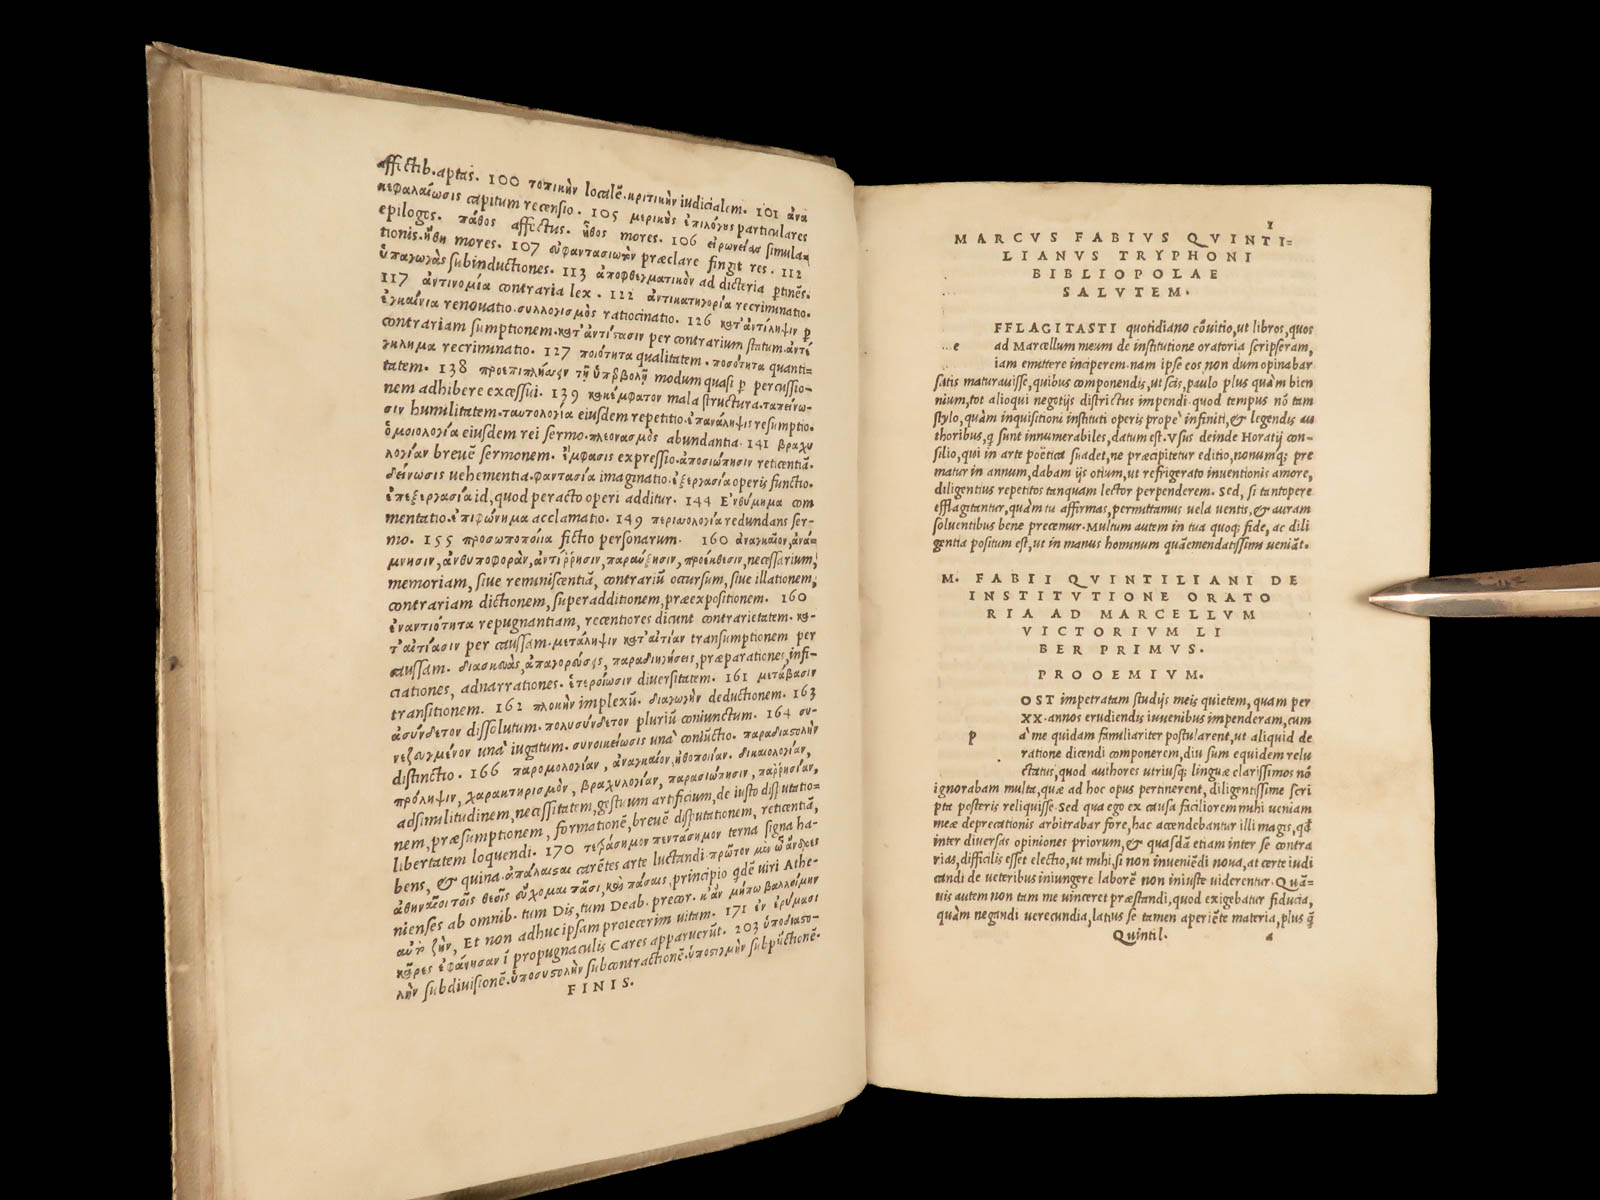 affectib.aptas. 100 τοπικὴν localē.κριτικὴν iudicialem. 101 ἀνα
κεφαλαίωσις capitum recensio. 105 μερικὸς ἐπιλόγος particulares
epilogos. πάθος affectus. ἦθος mores. 106 εἰρωνείας simula-
tionis.ἤθη mores. 107 εὐφαντασιωτὸν præclare fingit res. 112
ὑπαγωγὰς subinductiones. 113 ἀποφθεγματικὸν ad dicteria ꝑtinēs.
117 ἀντινομία contraria lex. 122 ἀντικατηγορία recriminatio.
ἐγκαίνια renouatio.συλλογισμὸς ratiocinatio. 126 κατ' ἀντίληψιν ꝑ
contrariam sumptionem.κατ' ἀντίστασιν per contrarium statum.ἀντέ
γκλημα recriminatio. 127 ποιότητα qualitatem. ποσότητα quanti=
tatem. 138 προεπιπλήσσειν τῇ ὑπερβολῇ modum quasi ꝑ percussio-
nem adhibere excessui. 139 κακέμφατον mala structura.ταπείνω-
σιν humilitatem.ταυτολογία eiusdem repetitio.ἐπανάληψις resumptio.
ὁμοιολογία eiusdem rei sermo.πλεονασμὸς abundantia. 141 βραχυ
λογίαν breuē sermonem. ἔμφασις expressio.ἀποσιώπησιν reticentiā.
δείνωσις uehementia.φαντασία imaginatio.ἐξεργασία operis functio.
ἐπεξεργασία id, quod peracto operi additur. 144 Ενθύμημα com
mentatio.ἐπιφώνημα acclamatio. 149 περισσολογία redundans ser-
mo. 155 προσωποποιία fictio personarum. 160 ἀναγκαῖον,ἀνά=
μνησιν,ἀνθυποφορὰν,ἀντίῤῥησιν,παραύξησιν,προέκθεσιν,necessarium,
memoriam, siue reminiscentiā, contrariū occursum, siue illationem,
contrariam dictionem, superadditionem, præexpositionem. 160
ἐναντιότητα repugnantiam, recentiores dicunt contrarietatem. κα-
τ' αἰτίασιν per caussam.μετάληψιν κατ' αἰτίαν transumptionem per
caussam. διασκευὰς, ἀπαγορεύσεις, παραδιηγήσεις, præparationes, infi-
ciationes, adnarrationes. ἑτεροίωσιν diuersitatem. 161 μετάβασιν
transitionem. 162 πλοκὴν implexū. διαγωγὴν deductionem. 163
ἀσύνδετον dissolutum. πολυσύνδετον pluriū coniunctum. 164 συ-
νεζευγμένον unà iugatum. συνοικείωσις unà coniūctio. παραδιαστολὴν
distinctio. 166 παρομολογίαν, ἀναγκαῖον, ἠθοποιίαν. δικαιολογίαν,
πρόληψιν, χαρακτηρισμὸν, βραχυλογίαν, παρασιώπησιν, παῤῥησίαν,
adsimilitudinem, necessitatem, gestuum artificium, de iusto disputatio=
nem, præsumptionem, formationē, breuē disputationem, reticentiā,
libertatem loquendi. 170 τετράσημον πεντάσημον terna signa ha-
bens, & quina. ἀπάλαιστοι carētes arte luctandi. πρῶτον μὲν ὦ ἄνδρες
ἀθηναῖοι τοῖς θεοῖς εὔχομαι πᾶσι, καὶ πάσαις, principio qdē uiri Athe-
nienses ab omnib. tum Dis, tum Deab. precor. κἂν μήπω βάλλοιμην
αὐτ ζῆν, Et non adhuc ipsam proiecerim uitam. 171 ἐν ἐρύμασι
κᾶρες ἐφάνησαν ī propugnaculis Cares apparuerūt. 203 ὑποδιαστο-
λὴν subdiuisionē.ὑποσυστολὴν subcontractionē.ὑποστιγμὴν subpūctionē.
FINIS.
1
MARCVS FABIVS QVINTI=
LIANVS TRYPHONI
BIBLIOPOLAE
SALVTEM.
e FFLAGITASTI quotidiano cōuitio, ut libros, quos
ad Marcellum meum de institutione oratoria scripseram,
iam emittere inciperem. nam ipse eos non dum opinabar
satis maturauisse, quibus componendis, ut scis, paulo plus quàm bien
nium, tot alioqui negotijs districtus impendi. quod tempus nō tam
stylo, quàm inquisitioni instituti operis propè infiniti, & legendis au
thoribus, q sunt innumerabiles, datum est. Vsus deinde Horatij con-
silio, qui in arte poëtica suadet, ne præcipitetur editio, nonumq; pre
matur in annum, dabam ijs otium, ut refrigerato inuentionis amore,
diligentius repetitos tanquam lector perpenderem. Sed, si tantopere
efflagitantur, quàm tu affirmas, permittamus uela uentis, & auram
soluentibus bene precemur. Multum autem in tua quoq; fide, ac dili
gentia positum est, ut in manus hominum quàemendatissimi ueniāt.
M. FABII QVINTILIANI DE
INSTITVTIONE ORATO
RIA AD MARCELLVM
VICTORIVM LI
BER PRIMVS.
PROOEMIVM.
p OST impetratam studijs meis quietem, quam per
XX. annos erudiendis iuuenibus impenderam, cum
à me quidam familiariter postularent, ut aliquid de
ratione dicendi componerem, diu sum equidem relu
ctatus, quod authores utriusq; linguæ clarissimos nō
ignorabam multa, quæ ad hoc opus pertinerent, diligentissime scri
pta posteris reliquisse. Sed qua ego ex causa faciliorem mihi ueniam
meæ deprecationis arbitrabar fore, hac accendebantur illi magis, qđ
inter diuersas opiniones priorum, & quasdā etiam inter se contra
rias, difficilis esset electio, ut mihi, si non inueniēdi noua, at certe iudi
candi de ueteribus iniungere laborē non iniuste uiderentur. Quā=
uis autem non tam me uinceret præstandi, quod exigebatur fiducia,
quàm negandi uerecundia, latius se tamen aperiēte materia, plus q̄
Quintil. a